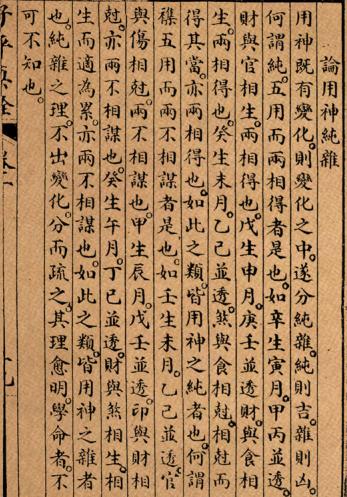 論用神純雜
用神既有變化。則變化之中。遂分純雜純則吉。雜則凶。
何謂純。互用而兩相得者是也。如辛生寅月。甲丙並透。
財與官相生。兩相得也。戊生申月。庚壬並透。財與食相
生。兩相得也。癸生未月。乙己並透。煞與食相尅。相尅而
得其當。亦兩相得也。如此之類。皆用神之純者也。何謂
襍互用而兩不相謀者是也。如壬生未月。乙己並透。官
與傷相尅。兩不相謀也。甲生辰月。戊壬並透。印與財相
尅。亦兩不相謀也。癸生午月。丁己並透。財與煞相生。相
生而適為累。亦兩不相謀也。如此之類。皆用神之雜者
也。純雜之理。不出變化。分而疏之。其理愈明。學命者。不
可不知也。
子平真詮
卷一